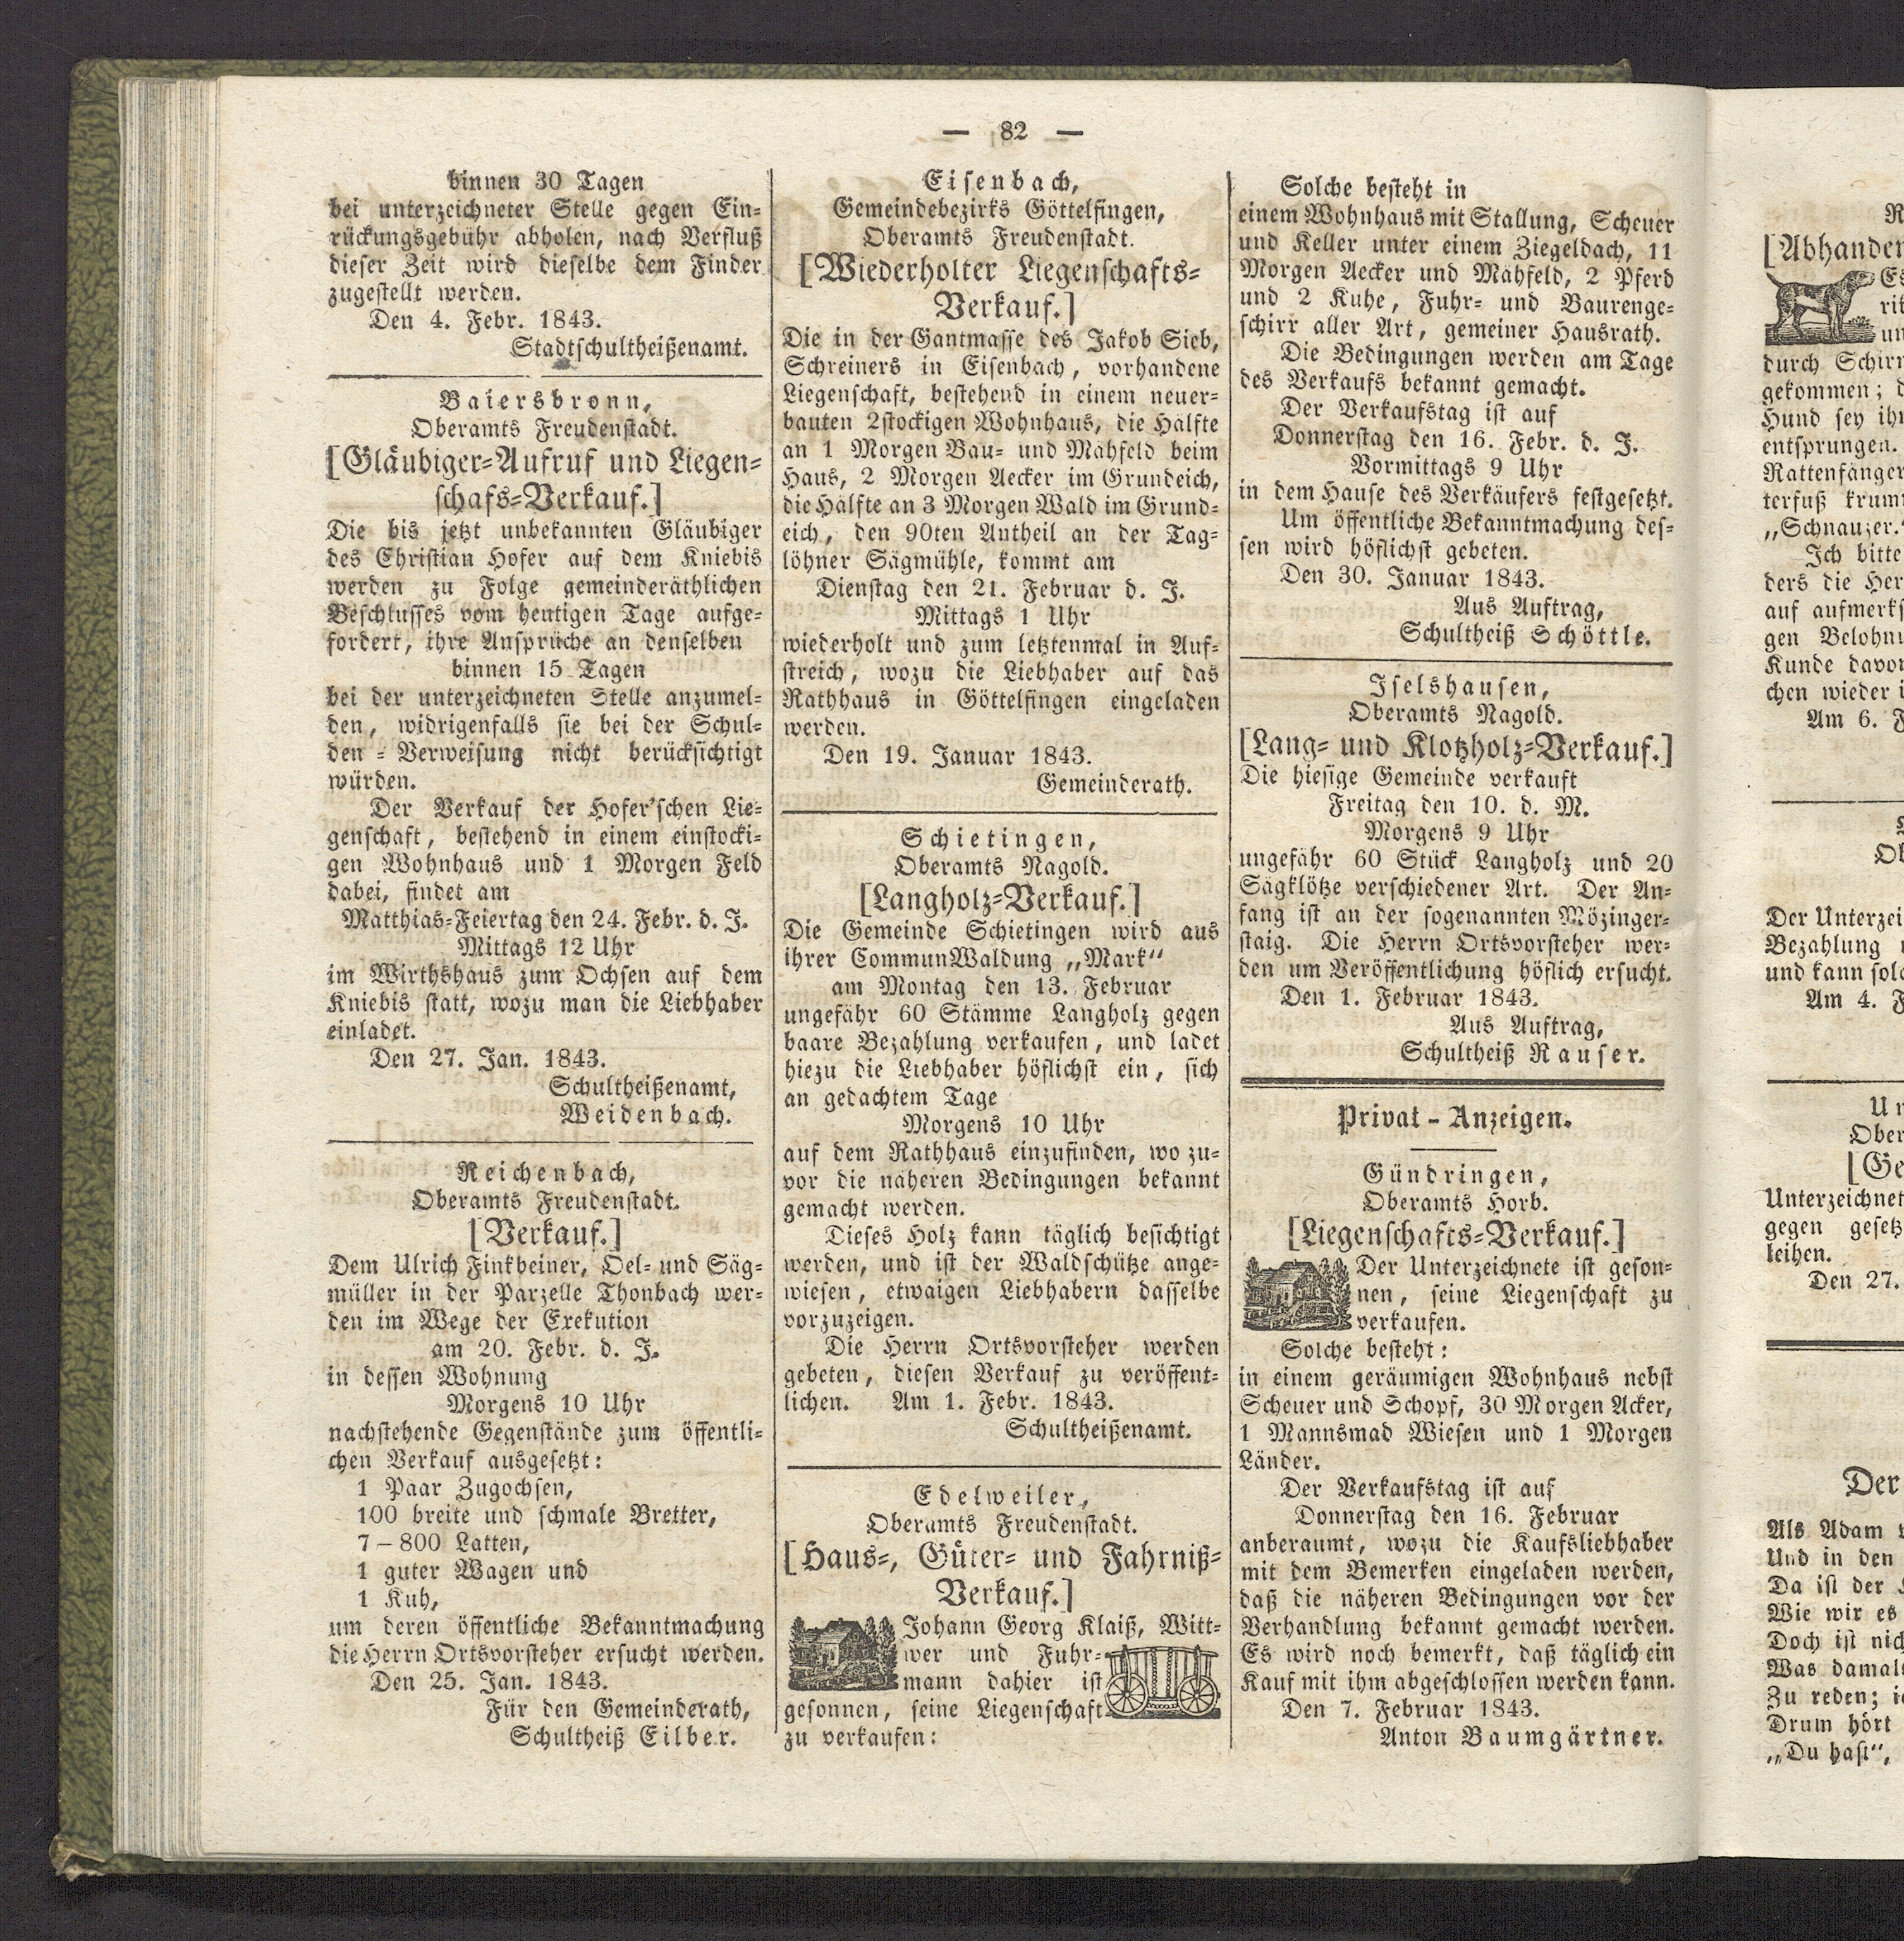 — 82 —
binnen 30 Tagen
bei unterzeichneter Stelle gegen Ein-
rückungsgebühr abholen, nach Verfluß
dieser Zeit wird dieselbe dem Finder
zugestellt werden.
Den 4. Febr. 1843.
Stadtschultheißenamt.
Baiersbronn,
Oberamts Freudenstadt.
[Gläubiger-Aufruf und Liegen-
schafs-Verkauf.]
Die bis jetzt unbekannten Gläubiger
des Christian Hofer auf dem Kniebis
werden zu Folge gemeinderäthlichen
Beschlusses vom heutigen Tage aufge-
fordert, ihre Ansprüche an denselben
binnen 15 Tagen
bei der unterzeichneten Stelle anzumel-
den, widrigenfalls sie bei der Schul-
den-Verweisung nicht berücksichtigt
würden.
Der Verkauf der Hofer'schen Lie-
genschaft, bestehend in einem einstocki-
gen Wohnhaus und 1 Morgen Feld
dabei, findet am
Matthias-Feiertag den 24. Febr. d. J.
Mittags 12 Uhr
im Wirthshaus zum Ochsen auf dem
Kniebis statt, wozu man die Liebhaber
einladet.
Den 27. Jan. 1843.
Schultheißenamt,
Weidenbach.
Reichenbach,
Oberamts Freudenstadt.
[Verkauf.]
Dem Ulrich Finkbeiner, Oel- und Säg-
müller in der Parzelle Thonbach wer-
den im Wege der Exekution
am 20. Febr. d. J.
in dessen Wohnung
Morgens 10 Uhr
nachstehende Gegenstände zum öffentli-
chen Verkauf ausgesetzt:
1 Paar Zugochsen,
100 breite und schmale Bretter,
7–800 Latten,
1 guter Wagen und
1 Kuh,
um deren öffentliche Bekanntmachung
die Herrn Ortsvorsteher ersucht werden.
Den 25. Jan. 1843.
Für den Gemeinderath,
Schultheiß Eilber.
Eisenbach,
Gemeindebezirks Göttelfingen,
Oberamts Freudenstadt.
[Wiederholter Liegenschafts-
Verkauf.]
Die in der Gantmasse des Jakob Sieb,
Schreiners in Eisenbach, vorhandene
Liegenschaft, bestehend in einem neuer-
bauten 2stockigen Wohnhaus, die Hälfte
an 1 Morgen Bau- und Mähfeld beim
Haus, 2 Morgen Aecker im Grundeich,
die Hälfte an 3 Morgen Wald im Grund-
eich, den 90ten Antheil an der Tag-
löhner Sägmühle, kommt am
Dienstag den 21. Februar d. J.
Mittags 1 Uhr
wiederholt und zum letztenmal in Auf-
streich, wozu die Liebhaber auf das
Rathhaus in Göttelfingen eingeladen
werden.
Den 19. Januar 1843.
Gemeinderath.
Schietingen,
Oberamts Nagold.
[Langholz-Verkauf.]
Die Gemeinde Schietingen wird aus
ihrer CommunWaldung „Mark“
am Montag den 13. Februar
ungefähr 60 Stämme Langholz gegen
baare Bezahlung verkaufen, und ladet
hiezu die Liebhaber höflichst ein, sich
an gedachtem Tage
Morgens 10 Uhr
auf dem Rathhaus einzufinden, wo zu-
vor die näheren Bedingungen bekannt
gemacht werden.
Dieses Holz kann täglich besichtigt
werden, und ist der Waldschütze ange-
wiesen, etwaigen Liebhabern dasselbe
vorzuzeigen.
Die Herrn Ortsvorsteher werden
gebeten, diesen Verkauf zu veröffent-
lichen. Am 1. Febr. 1843.
Schultheißenamt.
Edelweiler,
Oberamts Freudenstadt.
[Haus-, Güter- und Fahrniß-
Verkauf.]
Johann Georg Klaiß, Witt-
wer und Fuhr-
mann dahier ist
gesonnen, seine Liegenschaft
zu verkaufen:
Solche besteht in
einem Wohnhaus mit Stallung, Scheuer
und Keller unter einem Ziegeldach, 11
Morgen Aecker und Mähfeld, 2 Pferd
und 2 Kuhe, Fuhr- und Baurenge-
schirr aller Art, gemeiner Hausrath.
Die Bedingungen werden am Tage
des Verkaufs bekannt gemacht.
Der Verkaufstag ist auf
Donnerstag den 16. Febr. d. J.
Vormittags 9 Uhr
in dem Hause des Verkäufers festgesetzt.
Um öffentliche Bekanntmachung des-
sen wird höflichst gebeten.
Den 30. Januar 1843.
Aus Auftrag,
Schultheiß Schöttle.
Iselshausen,
Oberamts Nagold.
[Lang- und Klotzholz-Verkauf.]
Die hiesige Gemeinde verkauft
Freitag den 10. d. M.
Morgens 9 Uhr
ungefähr 60 Stück Langholz und 20
Sägklötze verschiedener Art. Der An-
fang ist an der sogenannten Mözinger-
staig. Die Herrn Ortsvorsteher wer-
den um Veröffentlichung höflich ersucht.
Den 1. Februar 1843.
Aus Auftrag,
Schultheiß Rauser.
Privat-Anzeigen.
Gündringen,
Oberamts Horb.
[Liegenschafts-Verkauf.]
Der Unterzeichnete ist geson-
nen, seine Liegenschaft zu
verkaufen.
Solche besteht:
in einem geräumigen Wohnhaus nebst
Scheuer und Schopf, 30 Morgen Acker,
1 Mannsmad Wiesen und 1 Morgen
Länder.
Der Verkaufstag ist auf
Donnerstag den 16. Februar
anberaumt, wozu die Kaufsliebhaber
mit dem Bemerken eingeladen werden,
daß die näheren Bedingungen vor der
Verhandlung bekannt gemacht werden.
Es wird noch bemerkt, daß täglich ein
Kauf mit ihm abgeschlossen werden kann.
Den 7. Februar 1843.
Anton Baumgärtner.
[Abhanden
Es
durch Schirn
gekommen; d
Hund sey ih
entsprungen.
Rattenfänger
terfuß krum
„Schnauzer.“
Ich bitte
ders die Her
auf aufmerks
gen Belohnu
Kunde davon
chen wieder i
Am 6. F
Der Unterzei
Bezahlung
und kann solc
Am 4. F
Un
Ober
[Ge
Unterzeichnet
gegen gesetz
leihen.
Den 27.
Der
Als Adam
Und in den
Da ist der
Wie wir es
Doch ist nich
Was damals
Zu reden;
Drum hört
„Du hast“,